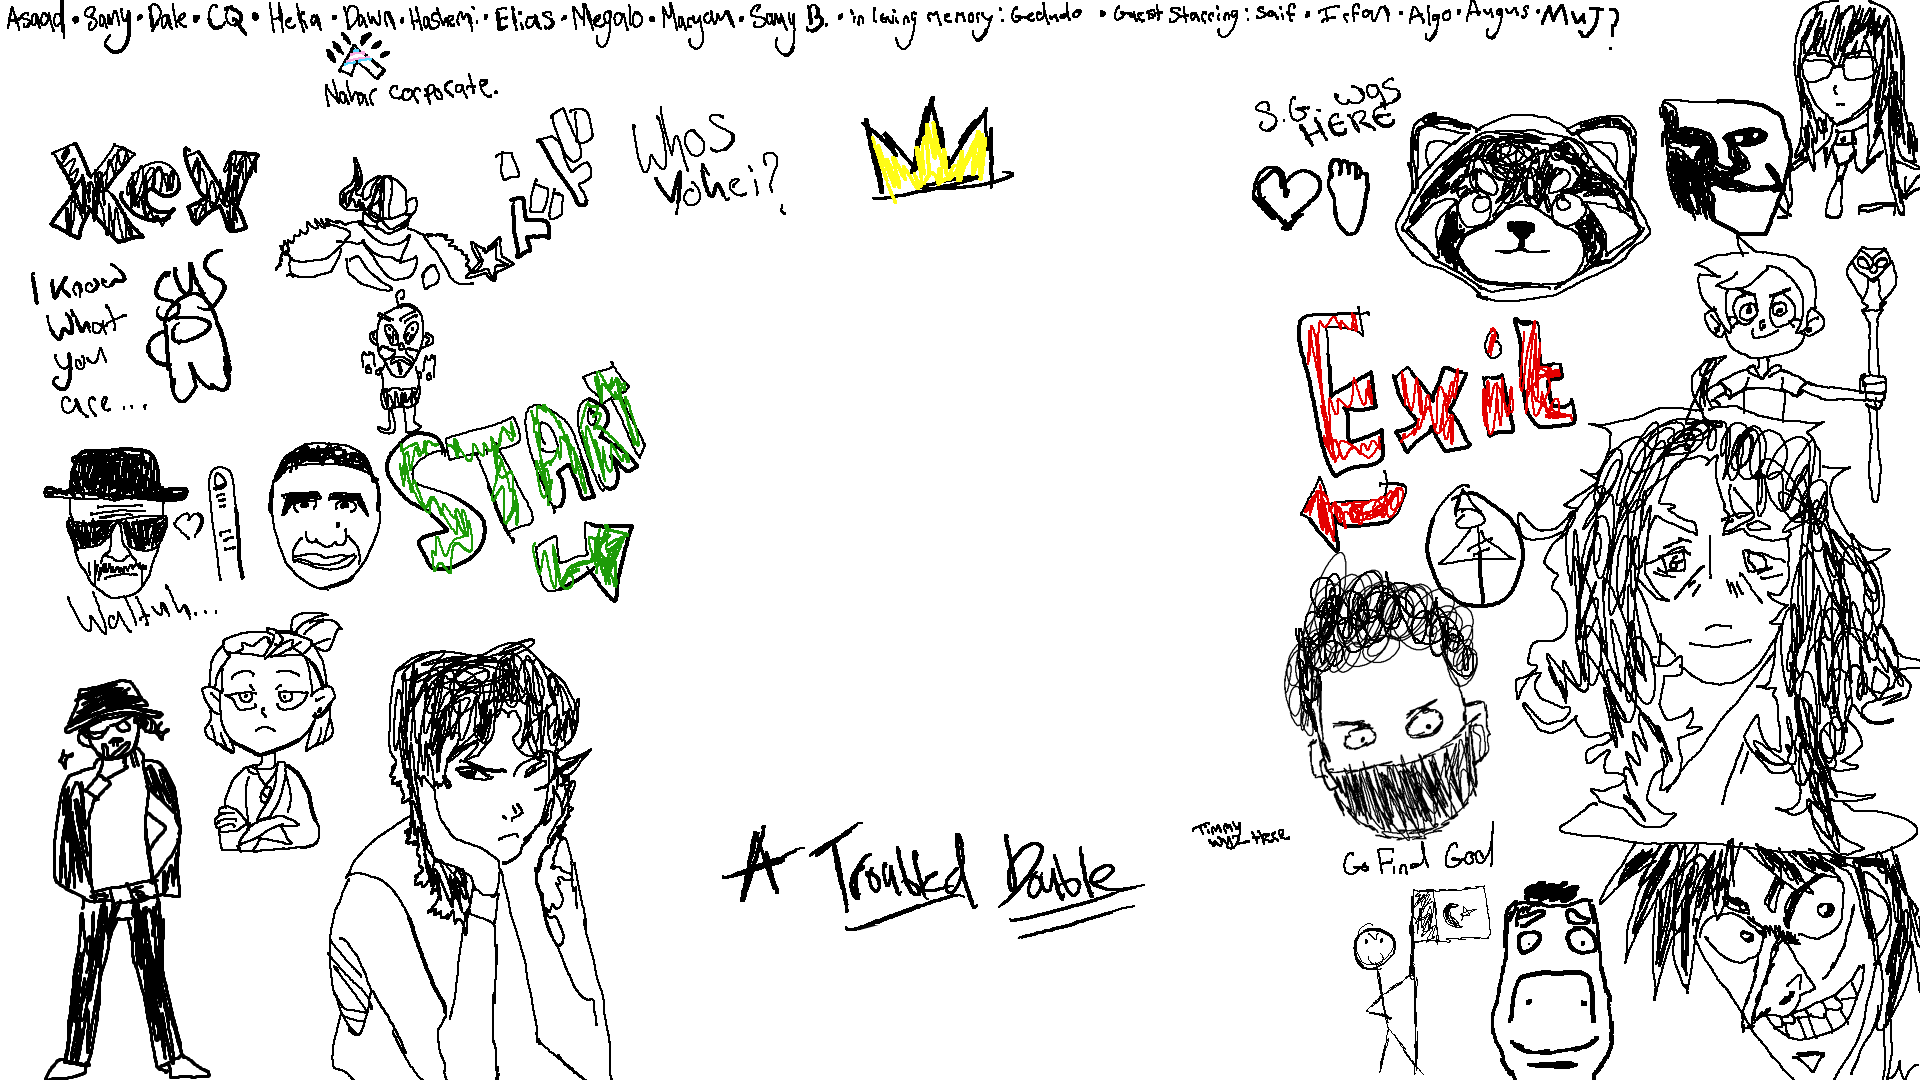 Asaad • Samy • Dale • CQ • Helia • Dawn • Hashemi • Elias • Megalo • Maryam • Samy B. • in loving memory: Gedudo • Guest Starring: Saif • Irfan • Algo • Augus • MUJ?
Nahar corporate.
Xey
Whos
Yohei?
S.G. was
HERE
I know
what
you
are...
SUS
START
Exit
Waltuh...
A Troubled Double
Timmy
WUZ HERE
Go Final Goal